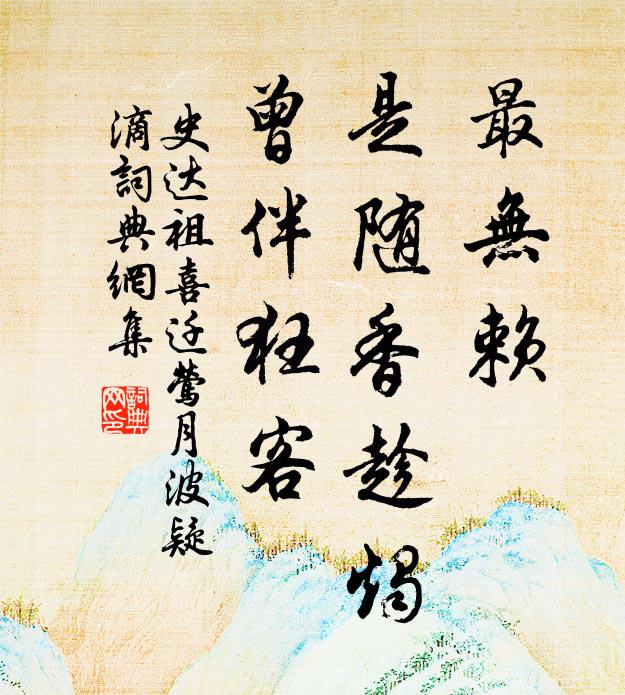 最無赖
是随香趁烛
曾伴狂客
史达祖喜迁莺月波疑
滴詞典網集
詞典
网印